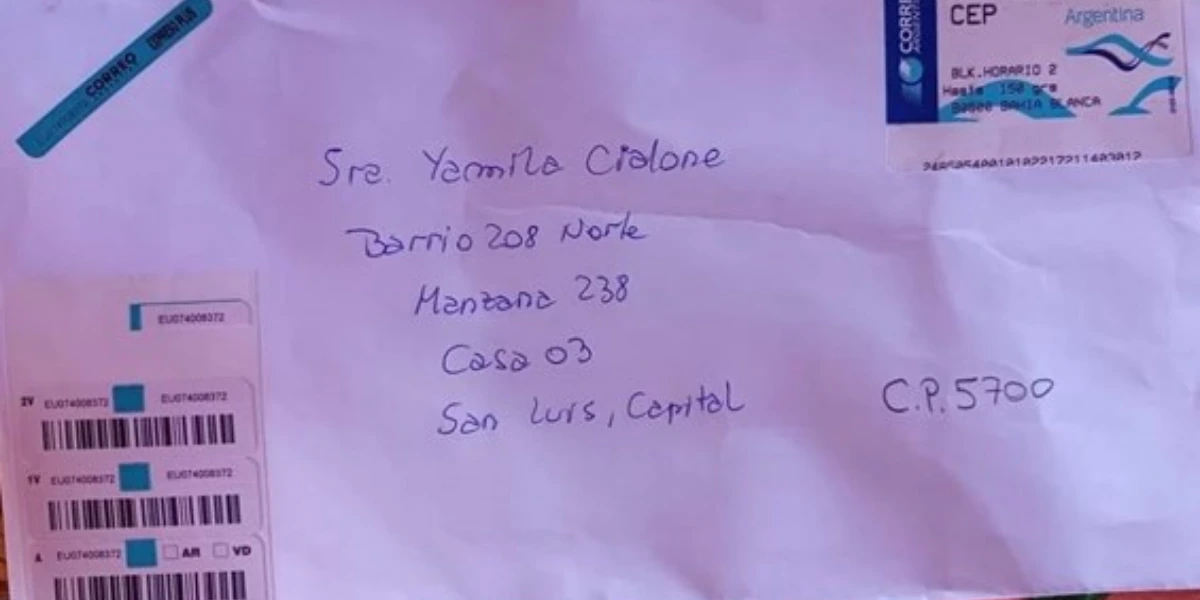 CORREO
CEP
Argentina
BLK.HORARIO 2
Hasta 150 grs
B8000 BAHIA BLANCA
Sra. Yamila Cialone
Barrio 208 Norte
Manzana 238
Casa 03
San Luis, Capital
C.P. 5700
EU074008372
2V EU074008372 EU074008372
1V EU074008372 EU074008372
A EU074008372 AR VD